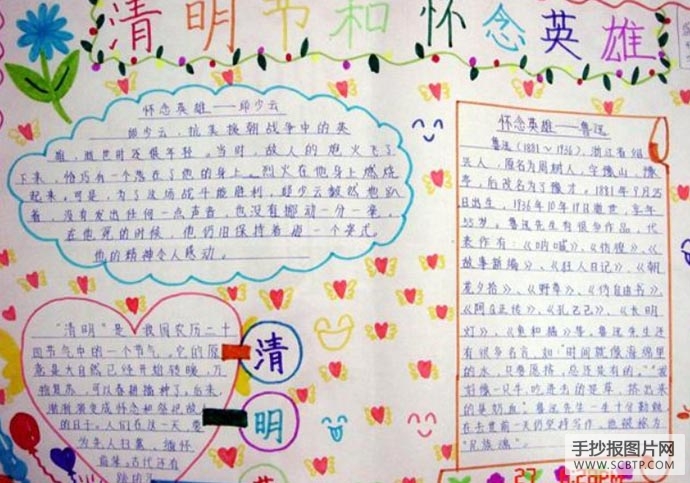 清明节和怀念英雄
怀念英雄——邱少云
邱少云，抗美援朝战争中的英
雄，逝世时还很年轻。当时，敌人的炮火飞了
下来，恰巧有一个落在了他的身上。烈火在他身上燃烧
起来。可是，为了这场战斗能胜利，邱少云毅然地趴
着，没有发出任何一点声音，也没有挪动一分一毫，
在他死的时候，他仍旧保持着一个姿式。
他的精神令人感动。
怀念英雄——鲁迅
鲁迅(1881~1936)，浙江省绍
兴人，原名为周树人，字豫山、豫
亭，后改名为豫才。1881年9月25
日出生，1936年10月19日逝世，享年
55岁。鲁迅先生有很多作品，代
表作有：《呐喊》、《彷徨》、《
故事新编》、《狂人日记》、《朝
花夕拾》、《野草》、《伪自由书》、
《阿Q正传》、《孔乙己》、《长明
灯》、《鱼和橘》等。鲁迅先生还
有很多名言，如："时间就像海绵里
的水，只要愿挤，总还是有的。"
好像一只牛，吃进去的是草，挤出来
的是奶血。鲁迅先生一生十分勤勉
在去世前一天仍坚持写作，他被称为
"民族魂"。
"清明"是我国农历二十
四节气中的一个节气。它的原
意是大自然已经开始转暖，万
物复苏，可以春耕播种了。后来，
渐渐演变成怀念和祭祀故
的日子。人们在这一天，要
为先人扫墓，缅怀
古代还有
清
明
27
手抄报图片网
WWW.SCBTP.COM